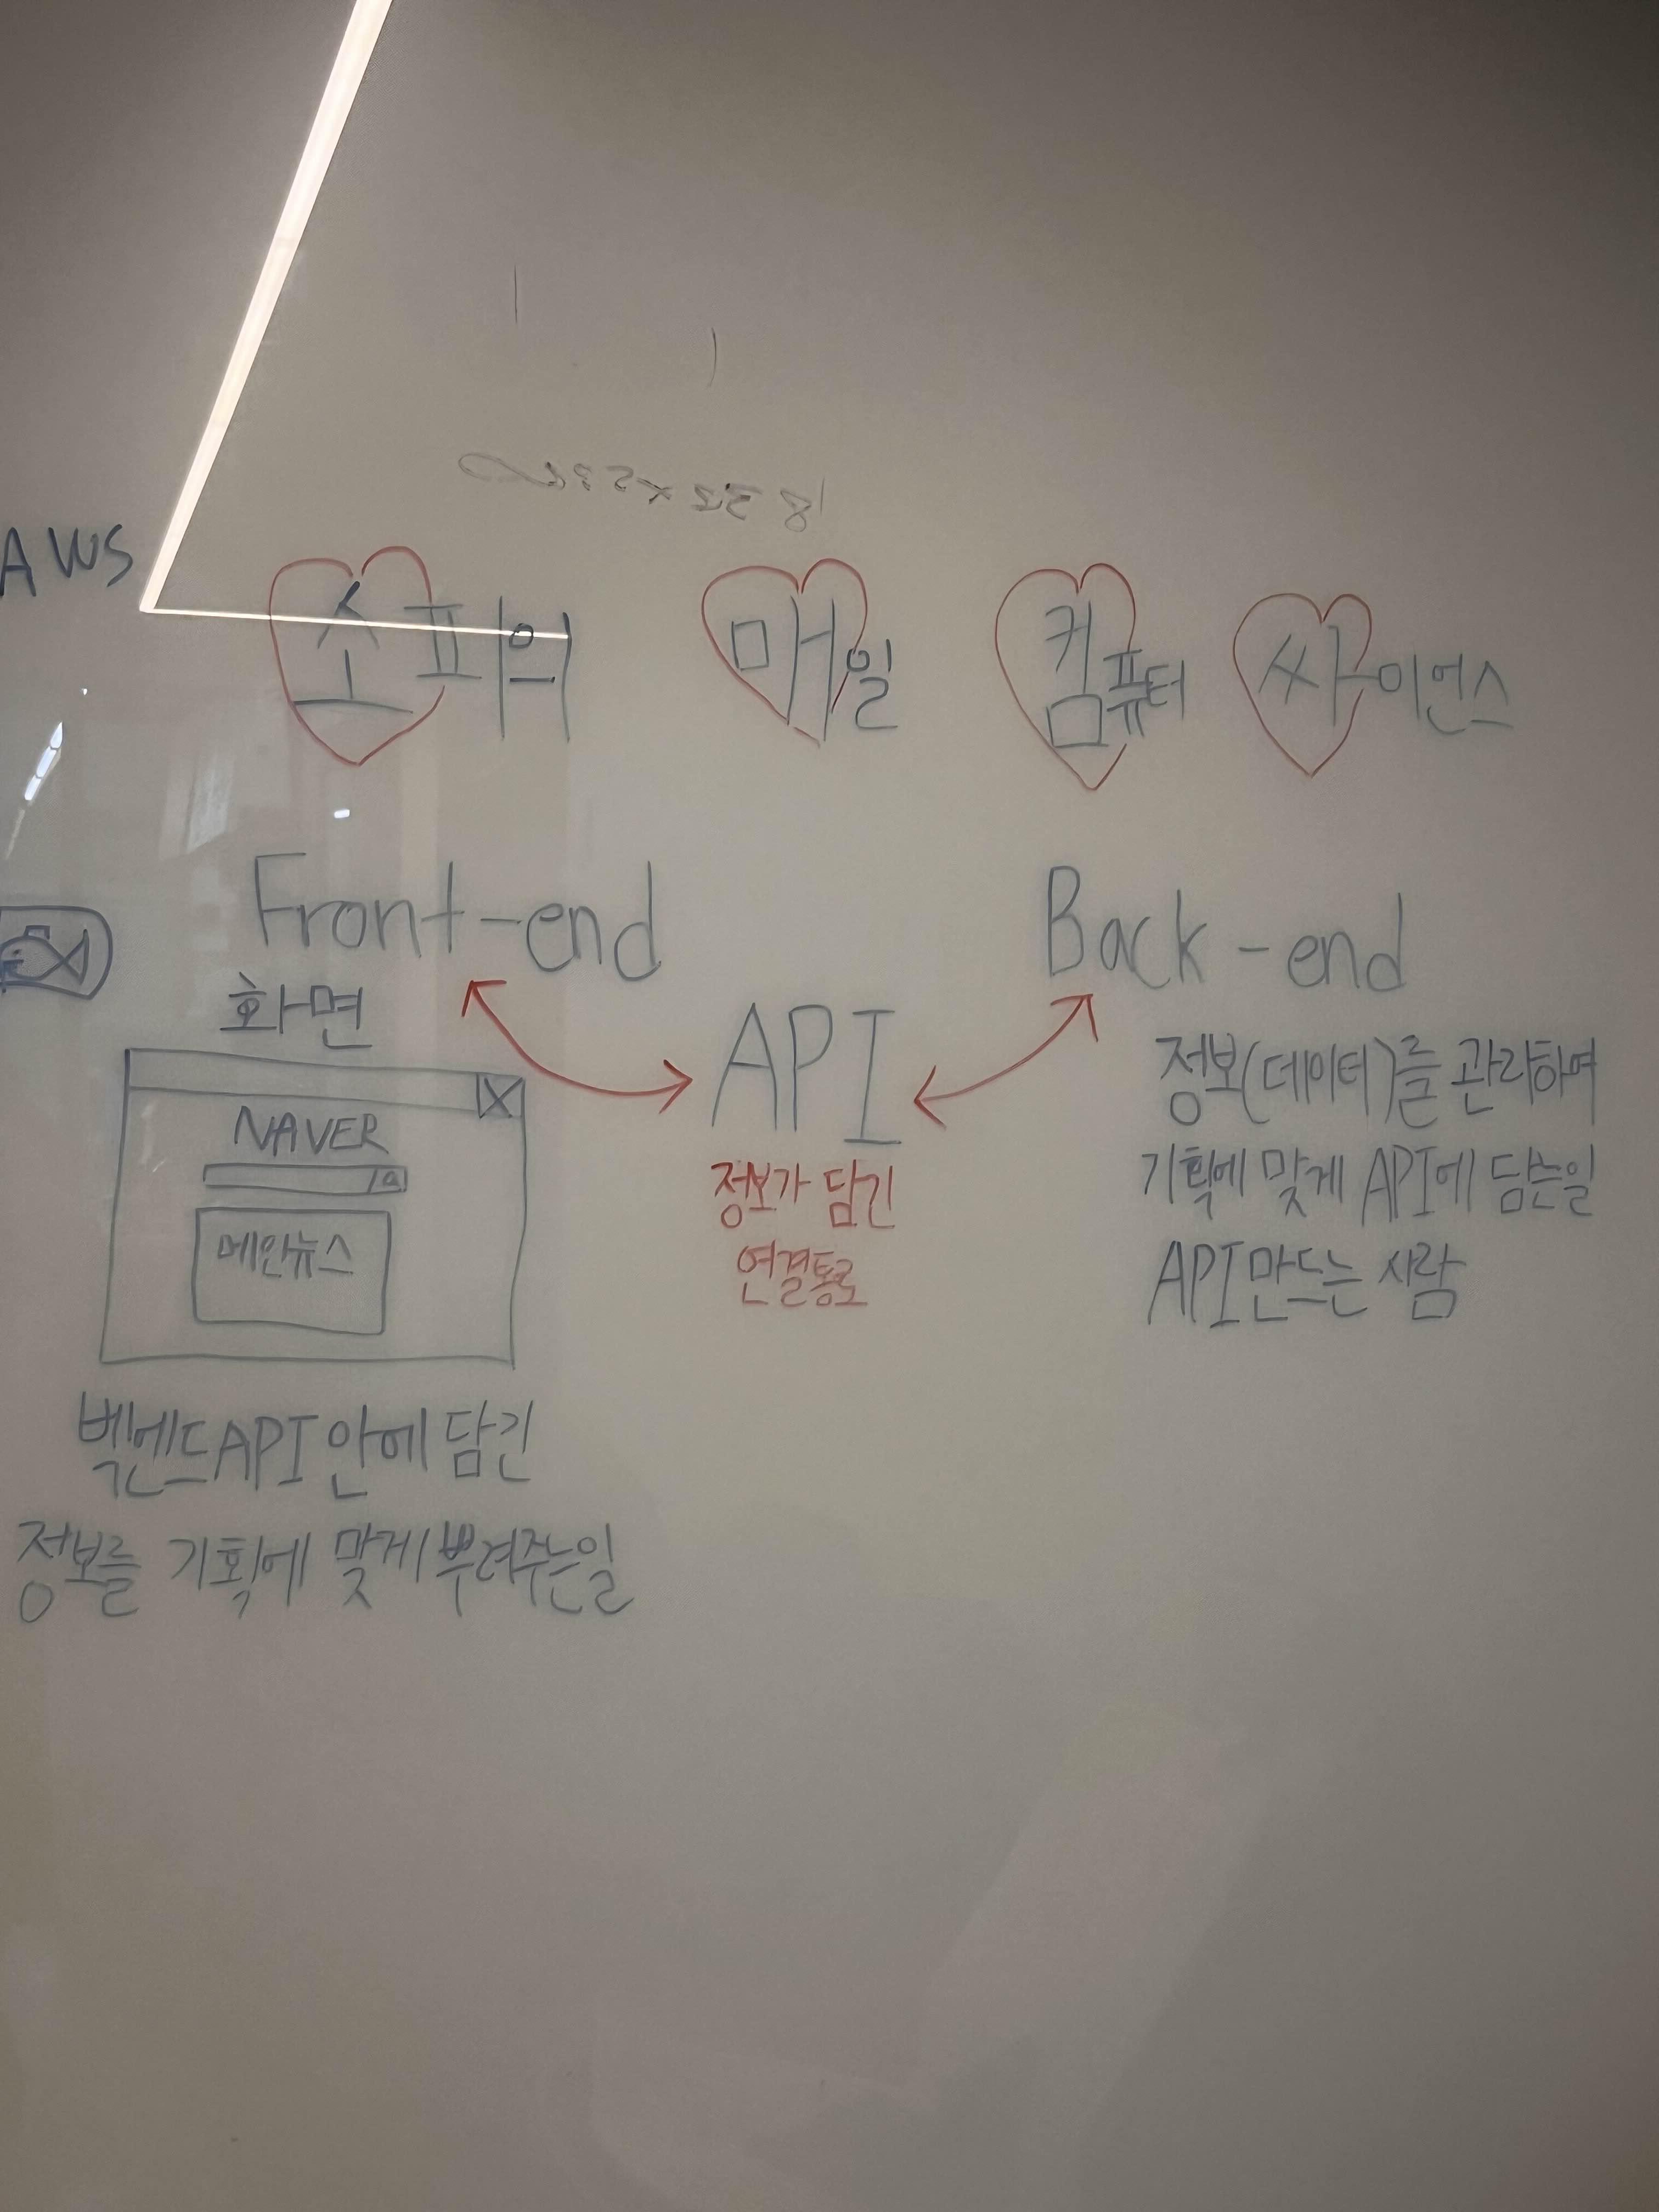 AWS
소프의 매일 컴퓨터 싸이언스
Front-end
화면
NAVER
메인뉴스
벡엔드API 안에 담긴
정보를 기획에 맞게 뿌려주는일
API
정보가 담긴
연결통로
Back-end
정보(데이터)를 관리하여
기획에 맞게 API에 담는일
API만드는 사람